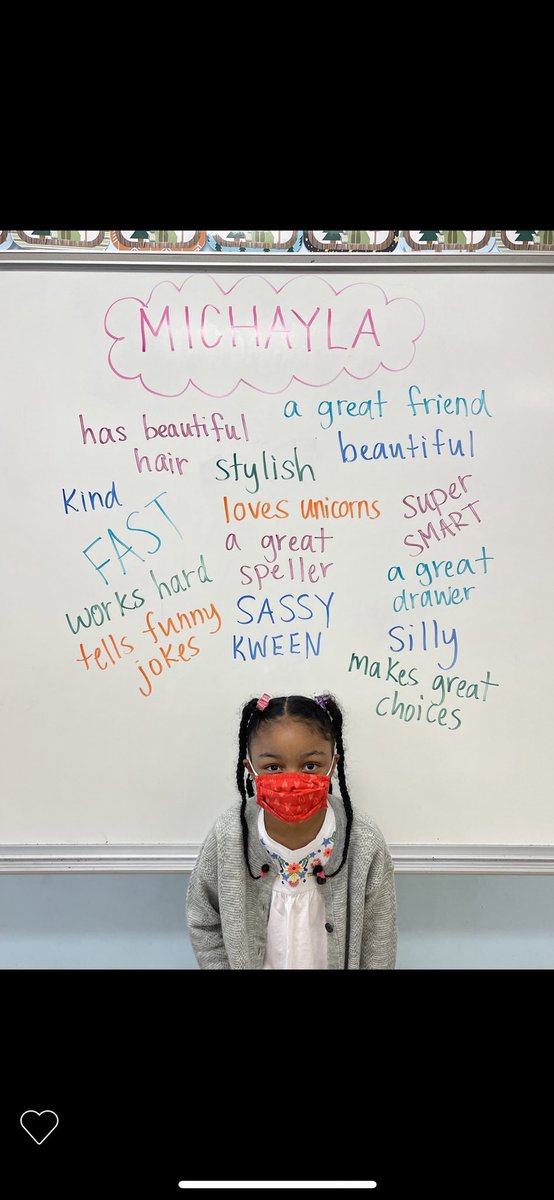 MICHAYLA
a great friend
has beautiful
hair
stylish
beautiful
Kind
FAST
loves unicorns
super
SMART
a great
speller
works hard
a great
drawer
tells funny
jokes
SASSY
KWEEN
silly
makes great
choices